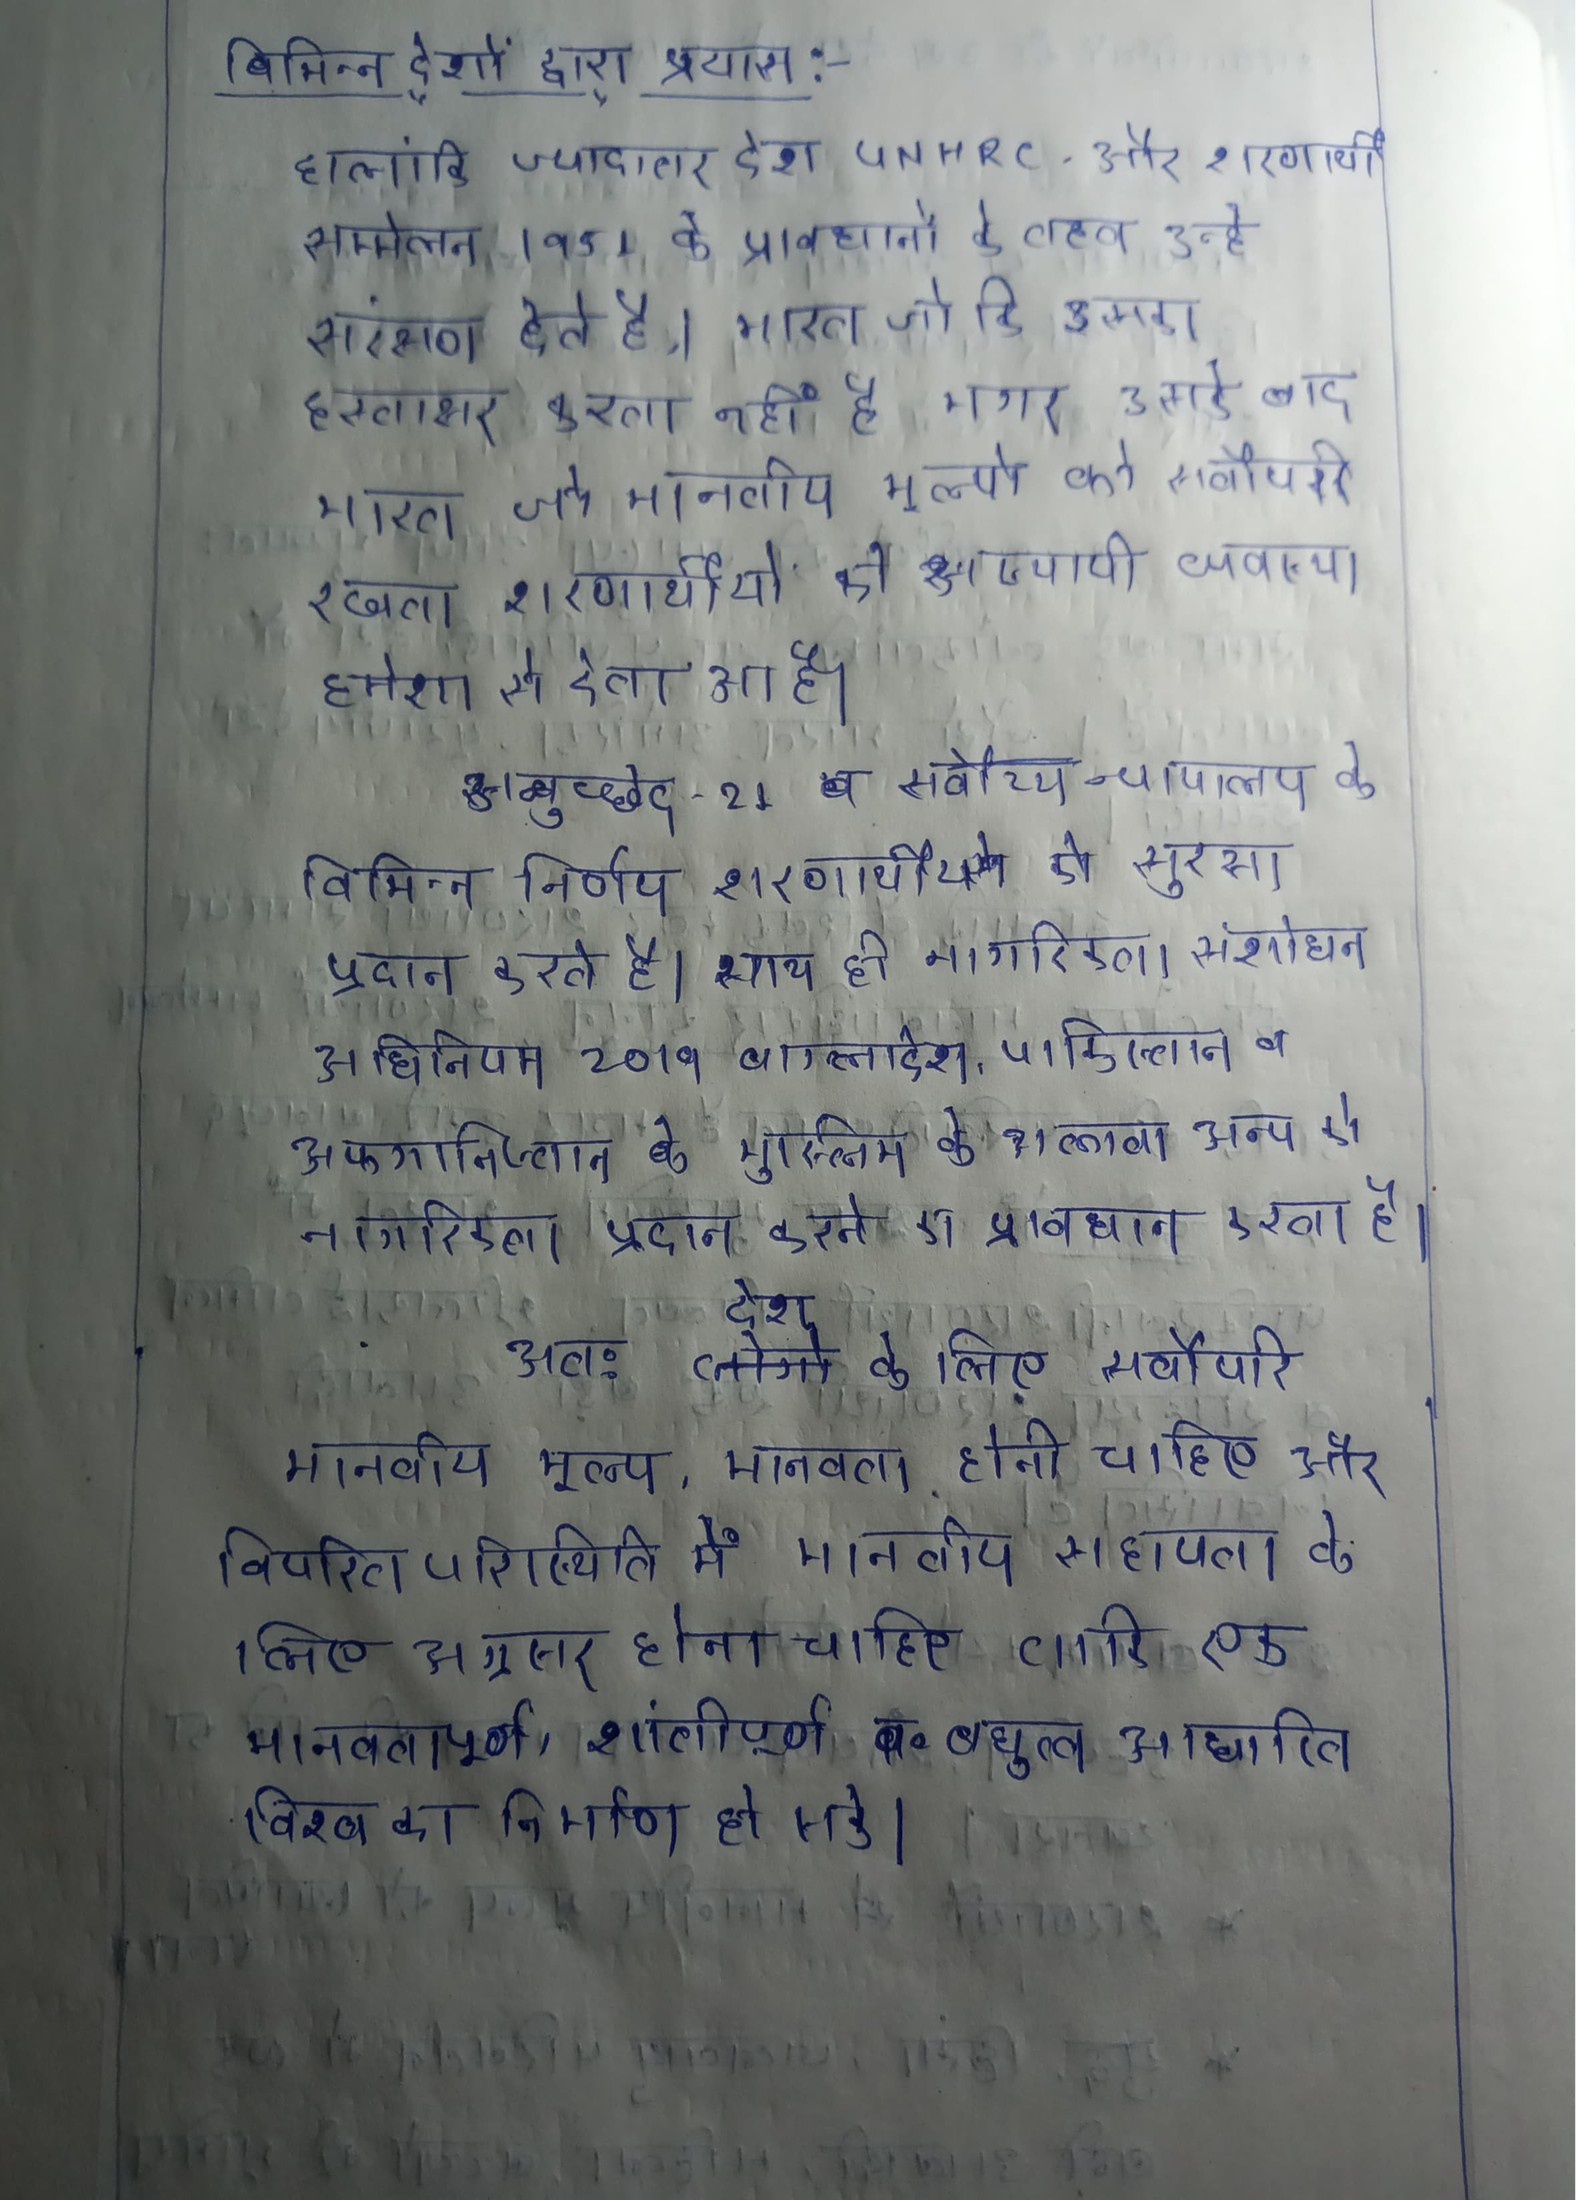 विभिन्न देशों द्वारा प्रयास :-
हालांकि ज्यादातर देश UNHRC - और शरणार्थी
सम्मेलन 1951 के प्रावधानों के तहत उन्हे
सरंक्षण देते है। भारत जो कि इसका
हस्ताक्षर करता नहीं है मगर उसके बाद
भारत जो मानवीय मूल्यो को सर्वोपरी
रखता शरणार्थीयों को अस्थायी व्यवस्था
हमेशा से देता आ है।
अनुच्छेद - 21 व सर्वोच्य न्यायालय के
विभिन्न निर्णय शरणार्थीयो को सुरक्षा
प्रदान करते है। साथ ही नागरिकता संशोधन
अधिनियम 2019 बाग्लादेश, पाकिस्तान व
अफगानिस्तान के मुस्लिम के अलावा अन्य को
नागरिकता प्रदान करने का प्रावधान करता है।
देश
अतः लोगो के लिए सर्वोपरि
मानवीय मूल्य, मानवता होनी चाहिए और
विपरित परिस्थिति में मानवीय सहायता के
लिए अग्रसर होना चाहिए ताकि एक
मानवतापूर्ण, शांतीपूर्ण व बधुत्व आधारित
विश्व का निर्माण हो सके।